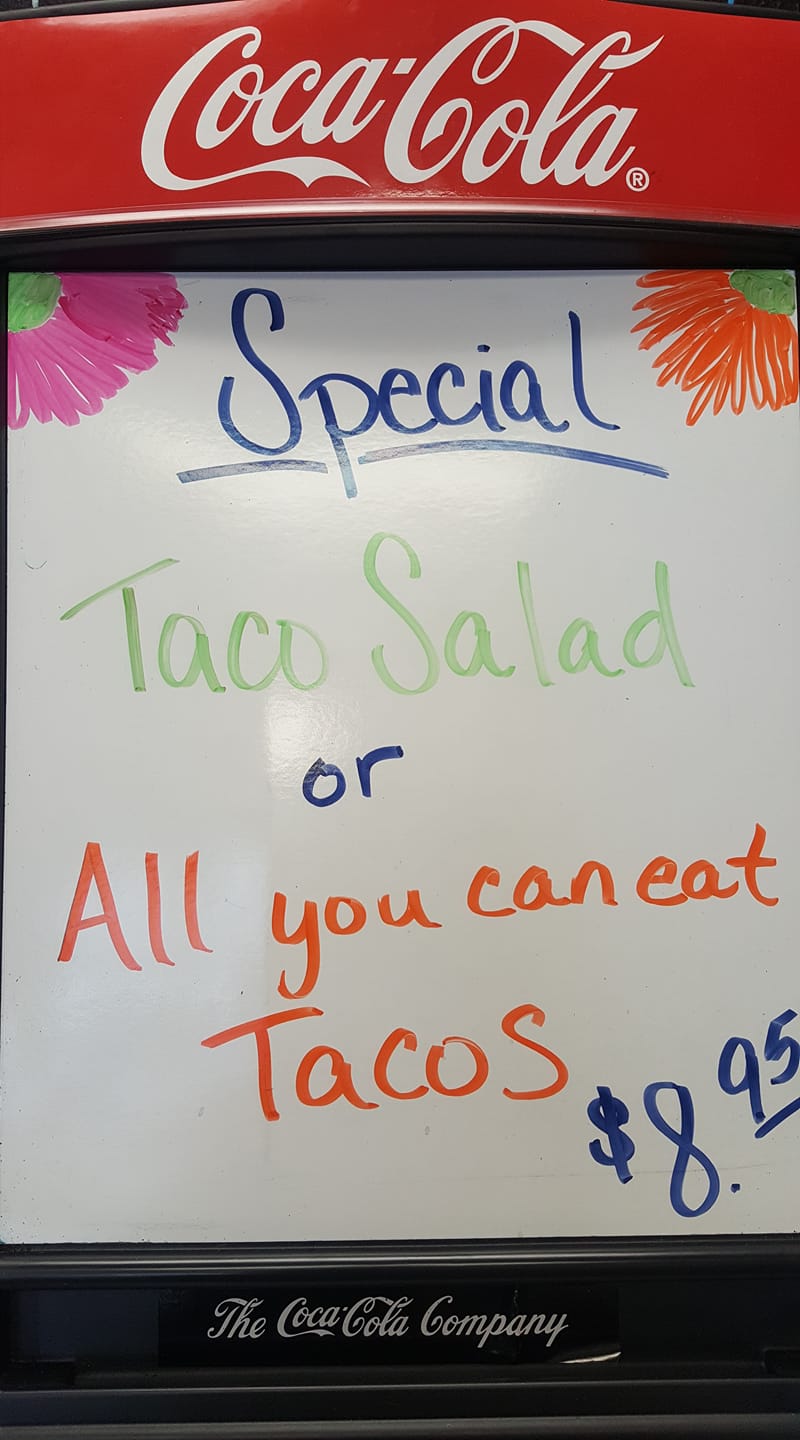 Coca-Cola®
Special
Taco Salad
or
All you can eat
Tacos
$8.95
The Coca-Cola Company